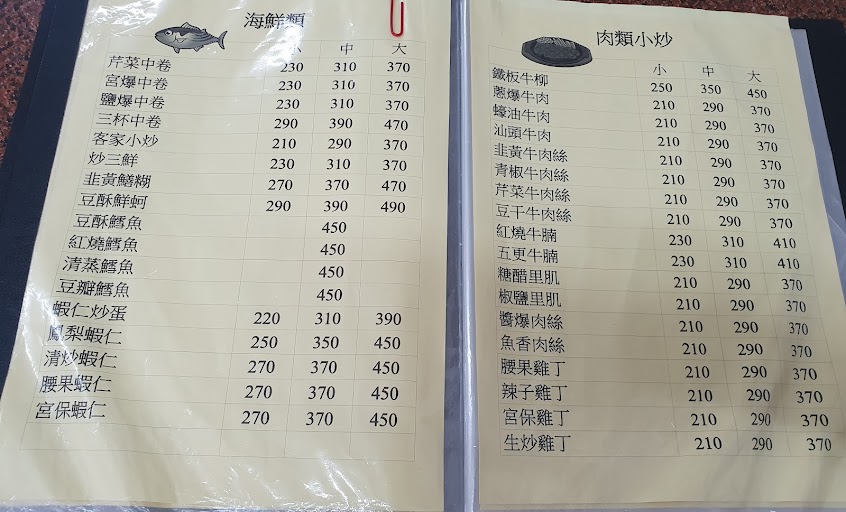 海鮮類
小 中 大
芹菜中卷 230 310 370
宮爆中卷 230 310 370
鹽爆中卷 230 310 370
三杯中卷 290 390 470
客家小炒 210 290 370
炒三鮮 230 310 370
韭黃鱔糊 270 370 470
豆酥鮮蚵 290 390 490
豆酥鱈魚 450
紅燒鱈魚 450
清蒸鱈魚 450
豆瓣鱈魚 450
蝦仁炒蛋 220 310 390
鳳梨蝦仁 250 350 450
清炒蝦仁 270 370 450
腰果蝦仁 270 370 450
宮保蝦仁 270 370 450
肉類小炒
小 中 大
鐵板牛柳 250 350 450
蔥爆牛肉 210 290 370
蠔油牛肉 210 290 370
汕頭牛肉 210 290 370
韭黃牛肉絲 210 290 370
青椒牛肉絲 210 290 370
芹菜牛肉絲 210 290 370
豆干牛肉絲 210 290 370
紅燒牛腩 230 310 410
五更牛腩 230 310 410
糖醋里肌 210 290 370
椒鹽里肌 210 290 370
醬爆肉絲 210 290 370
魚香肉絲 210 290 370
腰果雞丁 210 290 370
辣子雞丁 210 290 370
宮保雞丁 210 290 370
生炒雞丁 210 290 370